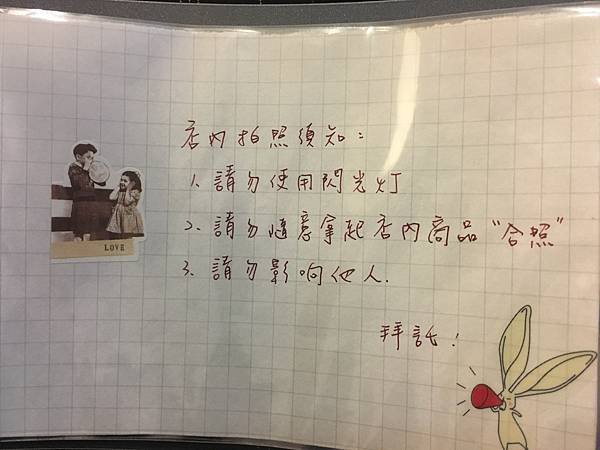 店內拍照須知：
1. 請勿使用閃光灯
2. 請勿隨意拿起店內商品"合照"
3. 請勿影响他人.
拜託！
LOVE